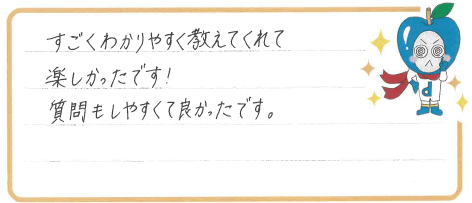 すごくわかりやすく教えてくれて
楽しかったです!
質問もしやすくて良かったです。
d